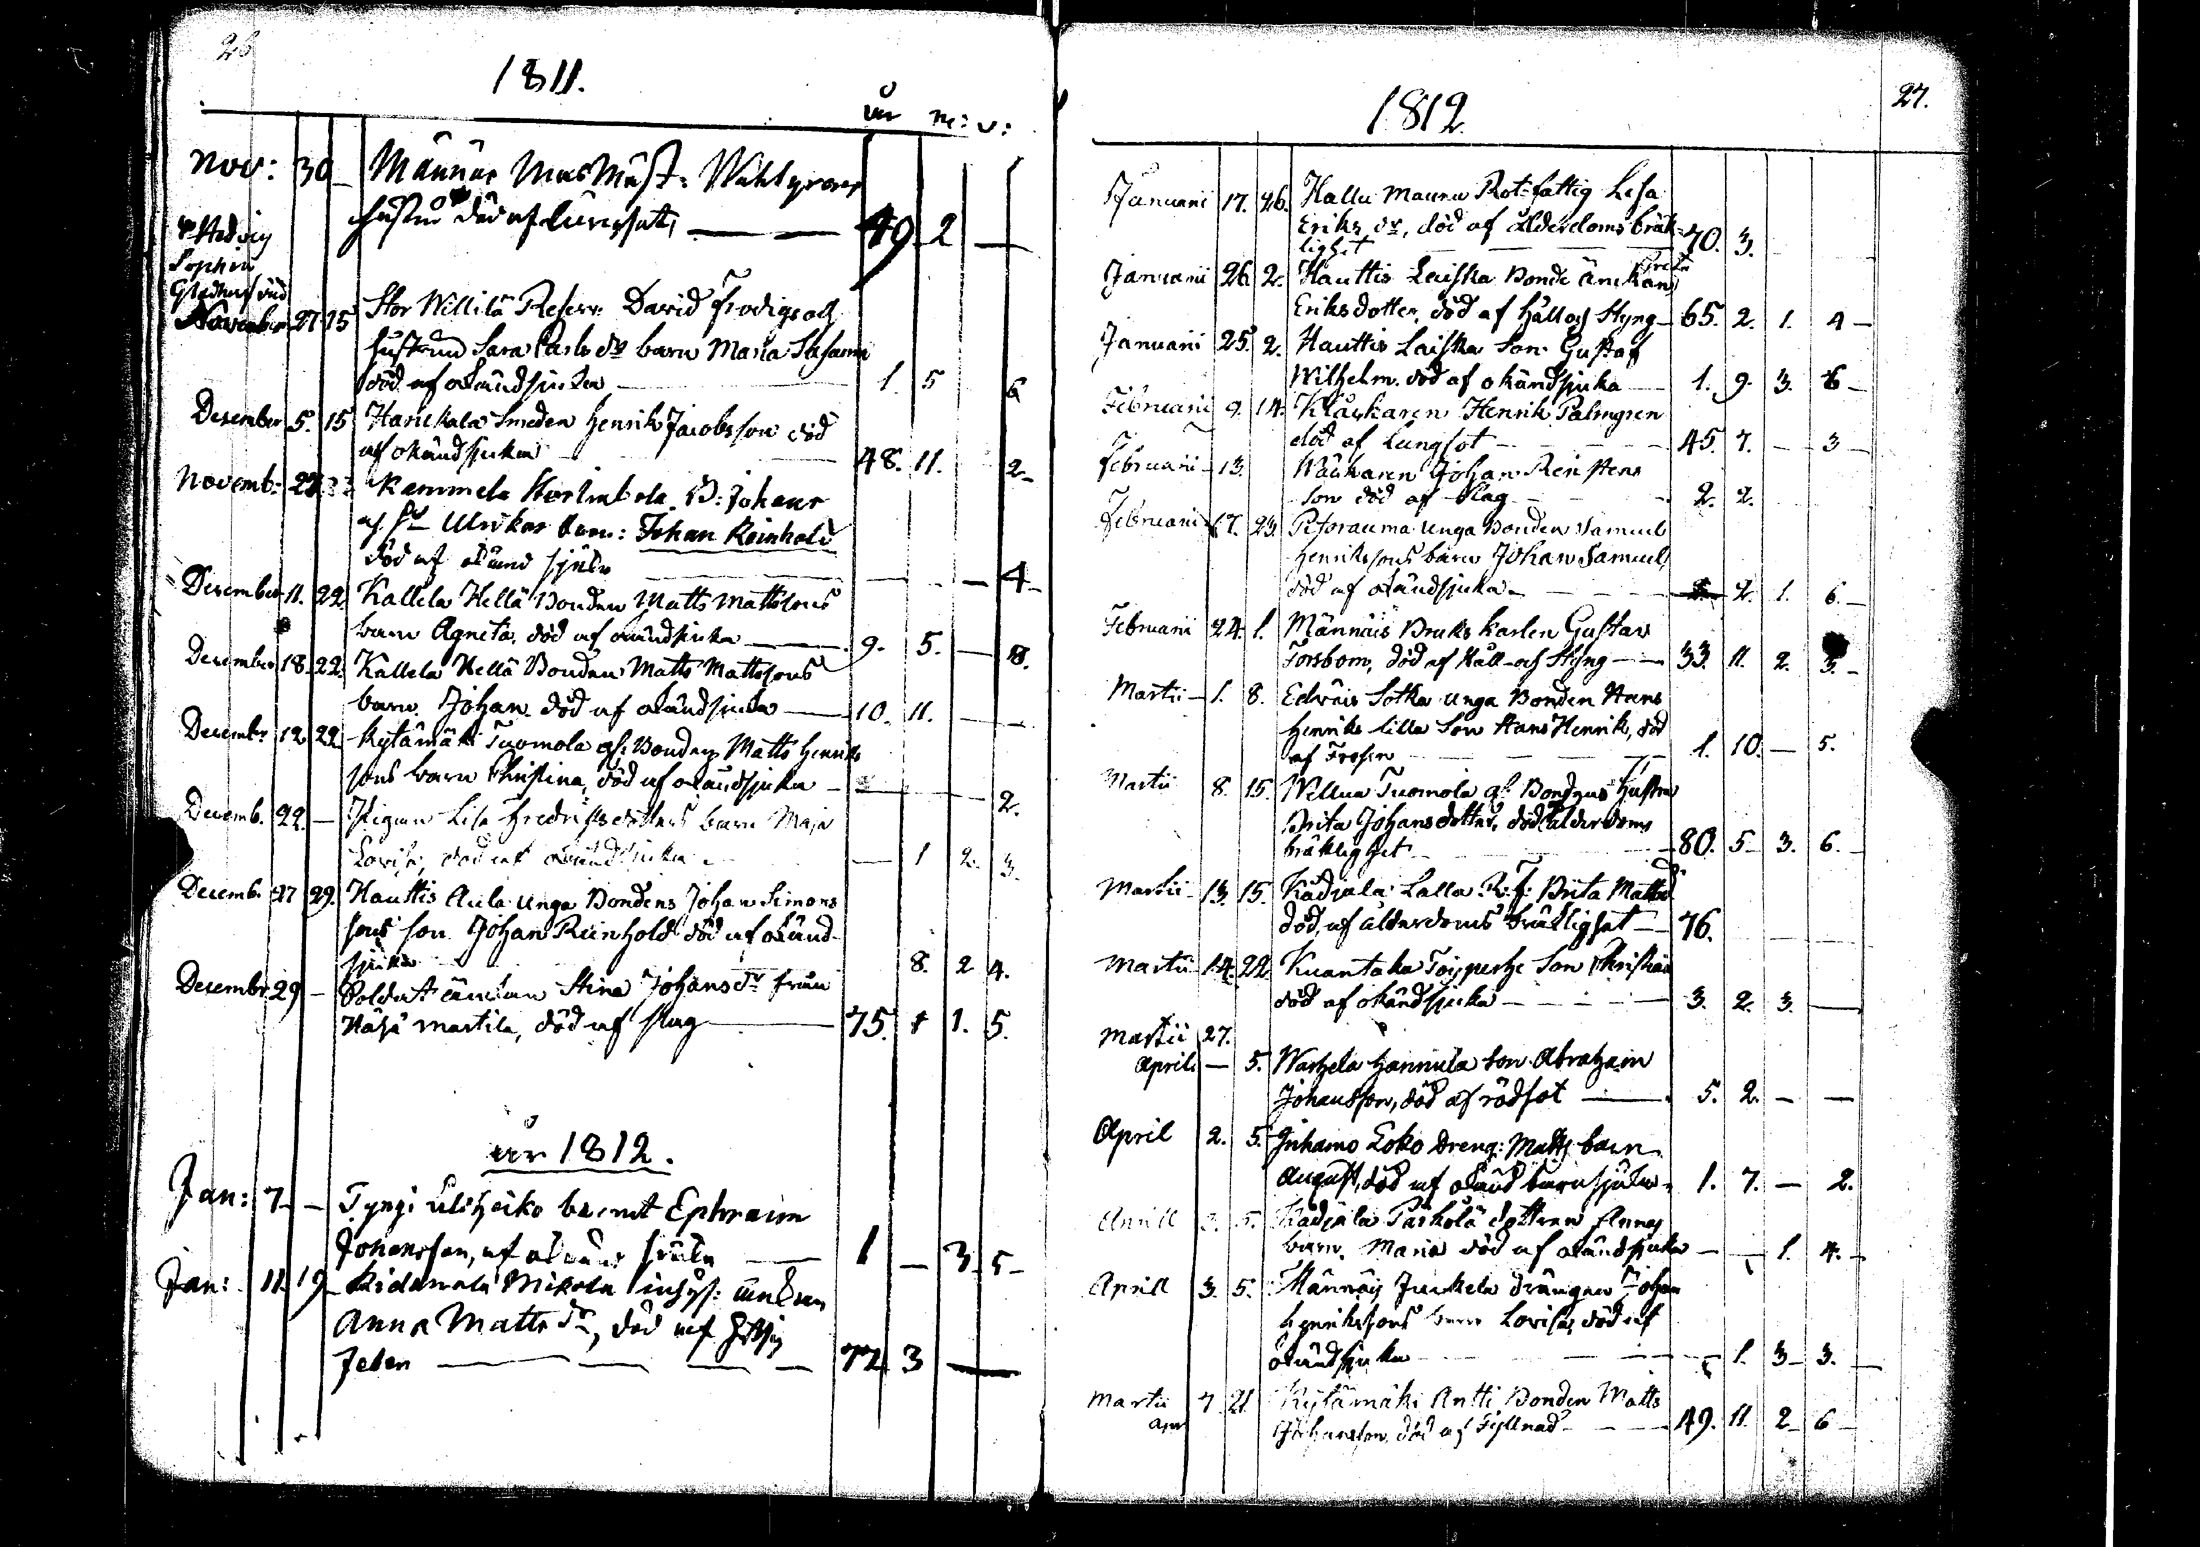 26
1811.
år m: v:
Nov: 30 – Männäis Mas Mäst: Wahlgrens
hustru död af lungsot, — 49 2 —
# Hedvig
Sophia
November 27 15 Stor Willilä Reserv: David Frodigs och
hustrun Sara Carls dr barn Maria Susanna
död af okändsjuka — 1. 5 6
Desember 5. 15 Smeden Henrik Jacobsson död
af okändsjuka — 48. 11. 2
Novemb: 27 Kammela B: Johans
och hu Ulrikas barn: Johan Reinhold
död af okänd sjuka — — — 4 –
Desember 11. 22. Kallela Hellä Bonden Matts Mattssons
barn Agneta, död af okändsjuka — 9. 5. — 8.
Desember 18. 22. Kallela Hellä Bonden Matts Mattssons
barn Johan död af okändsjuka — 10. 11. — —
Desembr 12 22. Kytämäki Tuomola gl. Bondens Matts Henriks
sons barn Christina, död af okändsjuka — — 2.
Decemb. 22. — Pigan Lisa Fredriksdotters barn Maja
Lovisa, död af okändsjuka — 1 2. 3.
Decemb. 27 29. Hauttis Aula unga Bondens Johan Simons
sons son Johan Reinhold död af okänd
sjuka 8. 2 4.
Desembr. 29 – Soldat änkan Stina Johans dr från
martila, död af slag — 75. 1 1. 5.
år 1812.
Jan: 7 – – Tyngi barnet Ephraim
Johansson, af okänd sjuka — 1 – 3 5 –
Jan: 11. 19 – Mikola inhys: änkan
Anna Matts dr, död af
feber — 72 3 —
27.
1812
Januarii 17. 26. Hallu Maunu Rot-fattig Lisa
Eriks dr, död af ålderdoms bräk=
lighet — 70. 3.
Januarii 26. 2. Hauttis Laiska Bonde änckan Greta
Eriksdotter, död af håll och styng — 65. 2. 1. 4 —
Januarii 25. 2. Hauttis Laiska Son Gustaf
Wilhelm. död af okändsjuka — 1. 9. 3. 6 –
Februarii 9. 14. Klåckaren Henrik Palmgren
död af Lungsot — 45. 7. — 3 —
Februarii – 13. Johan Reinstens
Son död af slag — 2. 2.
Februarii 17. 23. Pitorauma unga Bonden Samuel
Henrikssons barn Johan Samuel,
död af okändsjuka — 2. 1. 6. –
Februarii 24. 1. Männäis Bruks karlen Gustav
Forsbom, död af håll och styng — 33. 11. 2. 3. –
Martii – 1. 8. Edväis Sotka unga Bonden Hans
Henriks lilla Son Hans Henrik, död
af Frosen — 1. 10. — 5.
Martii 8. 15. Wellua Tuomola gl. Bondens hustru
Brita Johansdotter, död ålderdoms
bräklighet — 80. 5. 3. 6. –
Martii – 13. 15. Kädjälä Lalla R:f: Brita Matts dr
död af ålderdoms bräklighet — 76.
Martii 14. 22 Son Christian
död af okändsjuka — 3. 2. 3. —
Martii 27.
Aprili — 5. Warhela Hannula Son Abraham
Johansson, död af rödsot — 5. 2. – —
April 2. 5. Juhamo Loko Dreng: Matts barn
August, död af okänd barnsjuka – 1. 7. – 2.
Aprill 5. Kädjälä Parkola dottren Annas
barn Maria död af okändsjuka — — 1. 4. –
Aprill 3. 5. Männäis Junkela Drängen Johan
Henrikssons barn Lovisa, död af
okändsjuka — 1. 3 – 3. —
Martii
Apr 7 21. Kytämäki Antti Bonden Matts
Johansson död af — 49. 11. 2 – 6 –